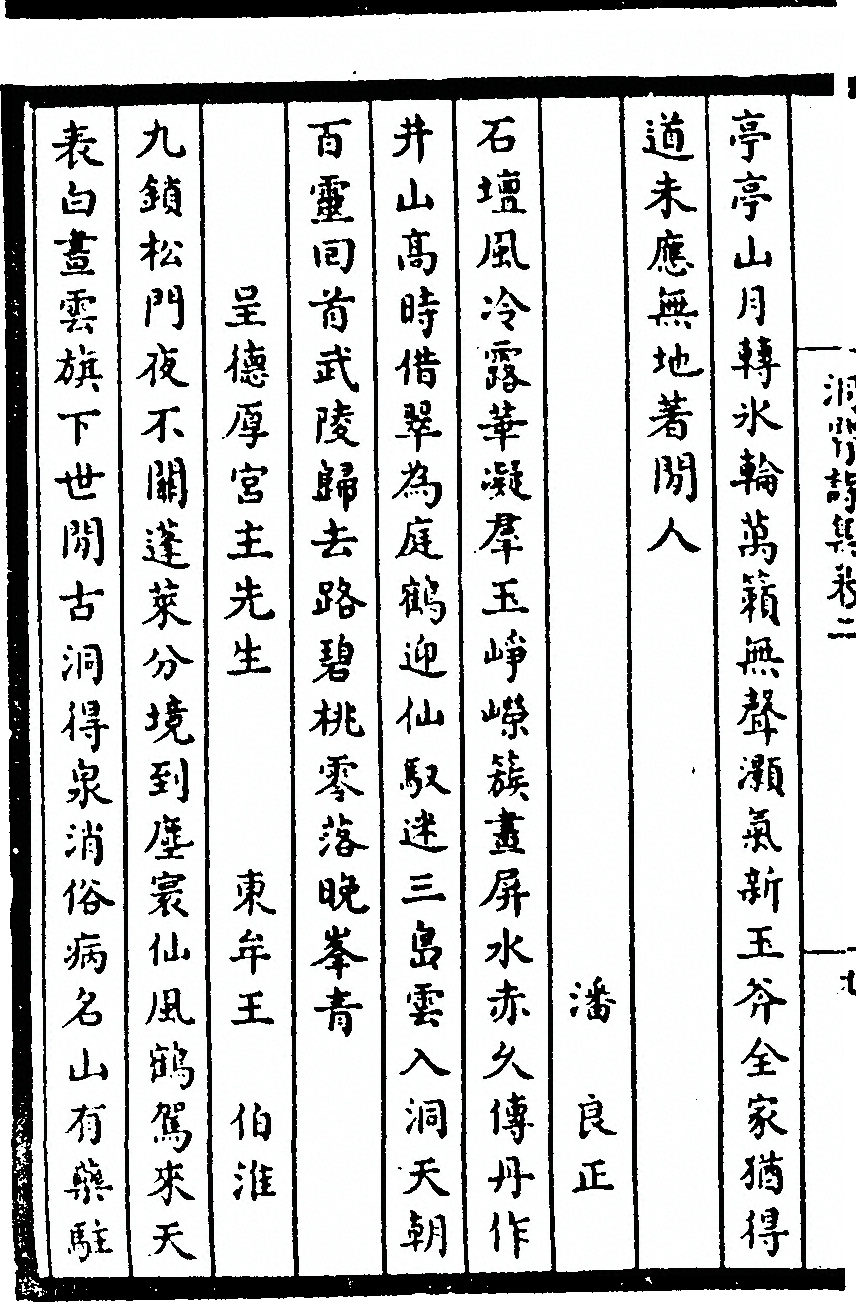 洞霄詩集卷二
亭亭山月轉氷輪萬籟無聲灝氣新玉斧全家猶得
道未應無地著閒人
潘　良正
石壇風冷露華凝羣玉崢嶸簇畫屏水赤久傳丹作
井山高時借翠為庭鶴迎仙馭迷三島雲入洞天朝
百靈回首武陵歸去路碧桃零落晚峯青
呈德厚宮主先生　　東牟王　伯淮
九鎖松門夜不關蓬萊分境到塵寰仙風鶴駕來天
表白晝雲旗下世閒古洞得泉消俗病名山有藥駐